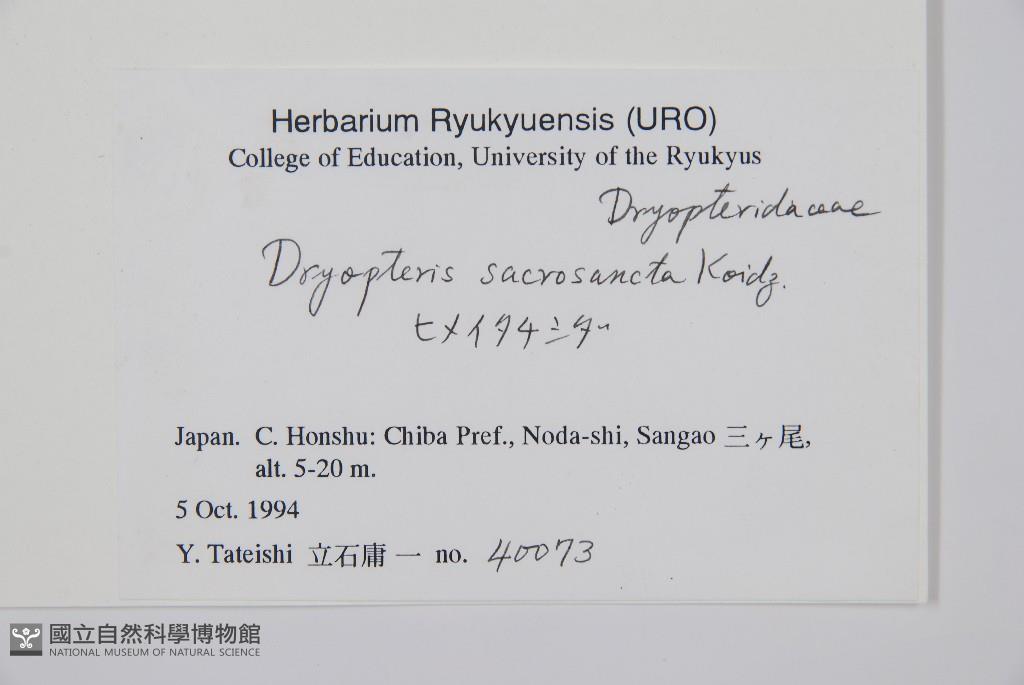 Herbarium Ryukyuensis (URO)
College of Education, University of the Ryukyus
Dryopteridaceae
Dryopteris sacrosancta Koidz.
ヒメイタチシダ
Japan. C. Honshu: Chiba Pref., Noda-shi, Sangao 三ヶ尾,
alt. 5-20 m.
5 Oct. 1994
Y. Tateishi 立石庸一 no. 40073
國立自然科學博物館
NATIONAL MUSEUM OF NATURAL SCIENCE